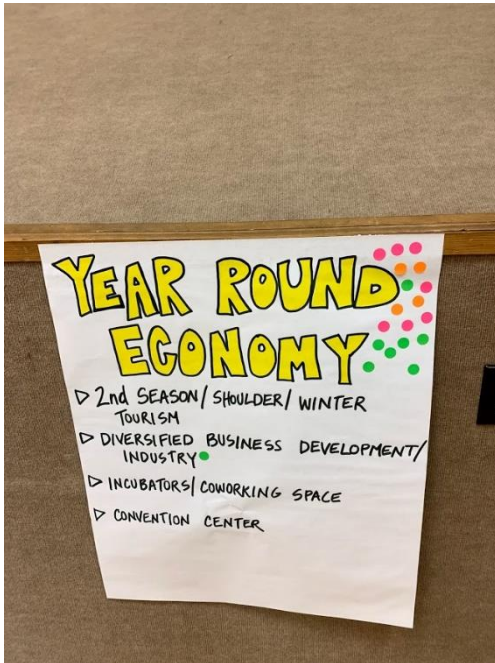 YEAR ROUND
ECONOMY
▷ 2nd SEASON/ SHOULDER/ WINTER
TOURISM
▷ DIVERSIFIED BUSINESS DEVELOPMENT/
INDUSTRY
▷ INCUBATORS/ COWORKING SPACE
▷ CONVENTION CENTER